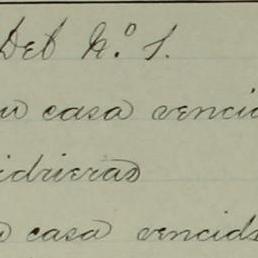 Del N.º 1.
su casa vencid
idrieras
casa vencida